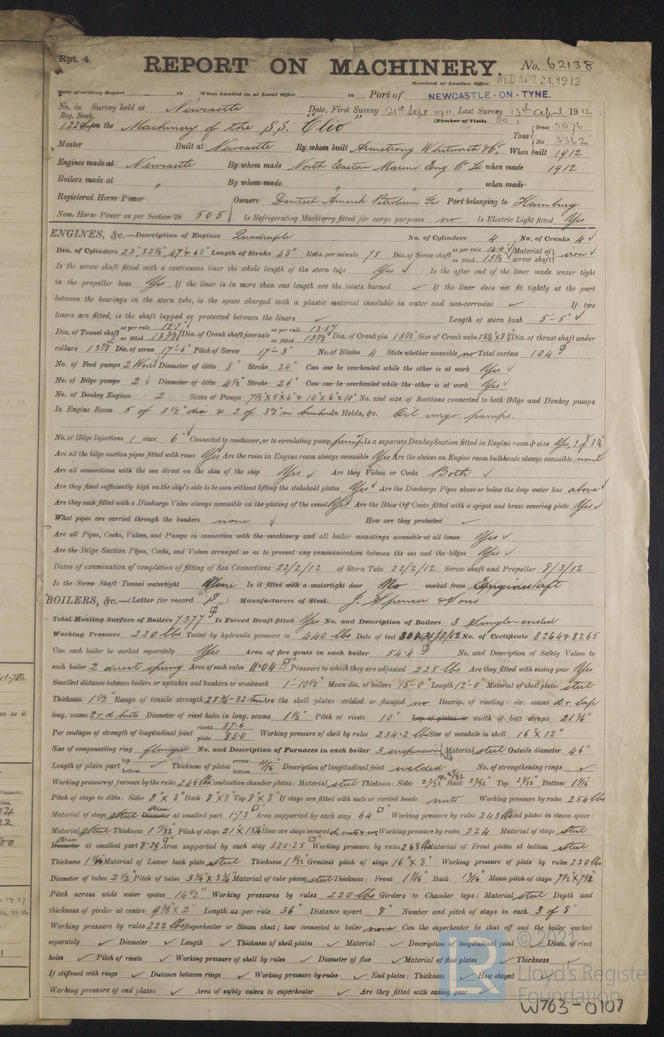 Rpt. 4.
REPORT ON MACHINERY. No. 62138
Received at London Office WED APR 24 1912
Date of writing Report 19 When handed in at Local Office 19 Port of NEWCASTLE-ON-TYNE.
No. in Reg. Book. Survey held at Newcastle Date, First Survey 21st Sept 1911 Last Survey 13th April 1912
(Number of Visits 50)
on the Machinery of the S.S. "Clio" Tons Gross 5576 Net 3362
Master Built at Newcastle By whom built Armstrong Whitworth & Co When built 1912
Engines made at Newcastle By whom made North Eastern Marine Eng Co Ld when made 1912
Boilers made at " By whom made " when made "
Registered Horse Power Owners Deutsch Amerik Petroleum Ges Port belonging to Hamburg
Nom. Horse Power as per Section 28 505 Is Refrigerating Machinery fitted for cargo purposes no Is Electric Light fitted Yes
ENGINES, &c.—Description of Engines Quadruple No. of Cylinders 4 No. of Cranks 4
Dia. of Cylinders Length of Stroke 48" Revs. per minute 75 Dia. of Screw shaft as per rule as fitted Material of screw shaft iron
Is the screw shaft fitted with a continuous liner the whole length of the stern tube Yes Is the after end of the liner made water tight
in the propeller boss Yes If the liner is in more than one length are the joints burned If the liner does not fit tightly at the part
between the bearings in the stern tube, is the space charged with a plastic material insoluble in water and non-corrosive If two
liners are fitted, is the shaft lapped or protected between the liners Length of stern bush 5'-5"
Dia. of Tunnel shaft as per rule 12.7" as fitted Dia. of Crank shaft journals as per rule 13.17 as fitted Dia. of Crank pin Size of Crank webs Dia. of thrust shaft under
collars Dia. of screw 17'-6" Pitch of Screw 17'-3" No. of Blades 4 State whether moveable no Total surface 104
No. of Feed pumps 2 Weirs Diameter of ditto 8" Stroke 24" Can one be overhauled while the other is at work Yes
No. of Bilge pumps 2 Diameter of ditto 4½" Stroke 26" Can one be overhauled while the other is at work Yes
No. of Donkey Engines 2 Sizes of Pumps No. and size of Suctions connected to both Bilge and Donkey pumps
In Engine Room 5 of 3½" dia & 2 of 3½" in bunker In Holds, &c. Oil cargo pumps.
No. of Bilge Injections 1 sizes 6" Connected to condenser, or to circulating pump pump Is a separate Donkey Suction fitted in Engine room & size Yes, 2 of 3½
Are all the bilge suction pipes fitted with roses Yes Are the roses in Engine room always accessible Yes Are the sluices on Engine room bulkheads always accessible none
Are all connections with the sea direct on the skin of the ship Yes Are they Valves or Cocks Both
Are they fixed sufficiently high on the ship's side to be seen without lifting the stokehold plates Yes Are the Discharge Pipes above or below the deep water line above
Are they each fitted with a Discharge Valve always accessible on the plating of the vessel Yes Are the Blow Off Cocks fitted with a spigot and brass covering plate Yes
What pipes are carried through the bunkers none How are they protected
Are all Pipes, Cocks, Valves, and Pumps in connection with the machinery and all boiler mountings accessible at all times Yes
Are the Bilge Suction Pipes, Cocks, and Valves arranged so as to prevent any communication between the sea and the bilges Yes
Dates of examination of completion of fitting of Sea Connections 22/2/12 of Stern Tube 22/2/12 Screw shaft and Propeller 8/3/12
Is the Screw Shaft Tunnel watertight None Is it fitted with a watertight door No worked from Engines aft
BOILERS, &c.—(Letter for record S) Manufacturers of Steel J. Spencer & Sons
Total Heating Surface of Boilers 7377 Is Forced Draft fitted Yes No. and Description of Boilers 3 Single-ended
Working Pressure 220 lbs Tested by hydraulic pressure to 440 lbs Date of test No. of Certificate 8264 & 8265
Can each boiler be worked separately Yes Area of fire grate in each boiler 54.4 No. and Description of Safety Valves to
each boiler 2 direct spring Area of each valve 11.04 Pressure to which they are adjusted 225 lbs Are they fitted with easing gear Yes
Smallest distance between boilers or uptakes and bunkers or woodwork 1'-10½" Mean dia. of boilers 15'-0" Length 12'-0" Material of shell plates steel
Thickness 1½" Range of tensile strength Are the shell plates welded or flanged no Descrip. of riveting: cir. seams d.r. lap
long. seams t.r.d. butts Diameter of rivet holes in long. seams 1½" Pitch of rivets 10" Lap of plates or width of butt straps
Per centages of strength of longitudinal joint rivets 87.6 plate 85.0 Working pressure of shell by rules 234.2 lbs Size of manhole in shell 16" x 12"
Size of compensating ring flanged No. and Description of Furnaces in each boiler 3 suspension Material steel Outside diameter 46"
Length of plain part top bottom Thickness of plates crown bottom Description of longitudinal joint welded No. of strengthening rings
Working pressure of furnace by the rules 246 lbs Combustion chamber plates: Material steel Thickness: Sides Back Top Bottom
Pitch of stays to ditto: Sides 8" x 8" Back 8" x 8" Top 8" x 8" If stays are fitted with nuts or riveted heads nuts Working pressure by rules 254 lbs
Material of stays steel Diameter at smallest part 1.73 Area supported by each stay 64 Working pressure by rules 243 lbs End plates in steam space:
Material steel Thickness Pitch of stays How are stays secured Working pressure by rules 224 Material of stays steel
Diameter at smallest part Area supported by each stay 320.25 Working pressure by rules Material of Front plates at bottom steel
Thickness Material of Lower back plate steel Thickness Greatest pitch of stays 16" x 8" Working pressure of plate by rules 230 lbs
Diameter of tubes 2½ Pitch of tubes Material of tube plates steel Thickness: Front Back Mean pitch of stays
Pitch across wide water spaces 14½" Working pressures by rules 220 lbs Girders to Chamber tops: Material steel Depth and
thickness of girder at centre Length as per rule 36" Distance apart 8" Number and pitch of stays in each 3 of 8"
Working pressure by rules 222 lbs Superheater or Steam chest; how connected to boiler none Can the superheater be shut off and the boiler worked
separately Diameter Length Thickness of shell plates Material Description of longitudinal joint Diam. of rivet
holes Pitch of rivets Working pressure of shell by rules Diameter of flue Material of flue plates Thickness
If stiffened with rings Distance between rings Working pressure by rules End plates: Thickness How stayed
Working pressure of end plates Area of safety valves to superheater Are they fitted with easing gear
© 2021
Lloyd's Register
Foundation
W763-0107